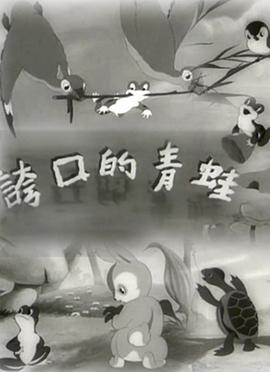 誇口的青蛙